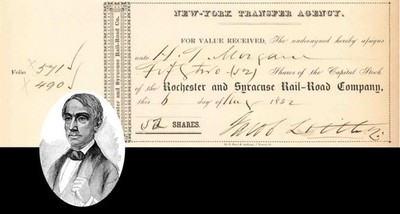 NEW-YORK TRANSFER AGENCY.
FOR VALUE RECEIVED, The undersigned hereby assigns
unto H. T. Morgan
Folio: 571
490
Fifty two (52) Shares of the Capital Stock
of the Rochester and Syracuse Rail-Road Company,
this 6 day of Aug 1852
52 SHARES. Jacob Little
and Syracuse Rail-Road Co.